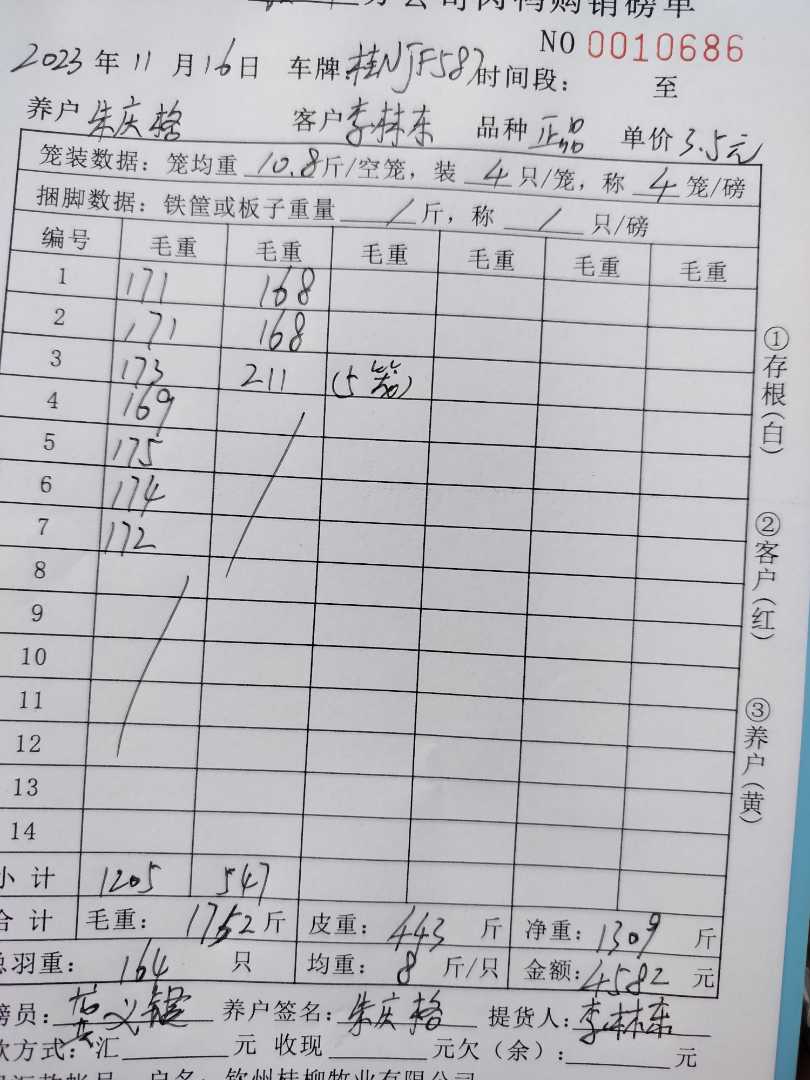 分公司肉鸭购销磅单
NO 0010686
2023年11月16日 车牌:桂NJF587 时间段: 至
养户 朱庆格 客户 李林东 品种 正品 单价 3.5元
笼装数据: 笼均重 10.8 斤/空笼, 装 4 只/笼, 称 4 笼/磅
捆脚数据: 铁筐或板子重量 / 斤, 称 / 只/磅
编号 毛重 毛重 毛重 毛重 毛重 毛重
1 171 168
2 171 168
3 173 211 (5笼)
4 169
5 175
6 174
7 172
8
9
10
11
12
13
14
小计 1205 547
合计 毛重: 1752斤 皮重: 443 斤 净重: 1309 斤
总羽重: 164 只 均重: 8 斤/只 金额: 4582 元
磅员: 养户签名: 朱庆格 提货人: 李林东
款方式: 汇 元 收现 元欠(余): 元
户名: 钦州桂柳牧业有限公司
①存根(白)
②客户(红)
③养户(黄)